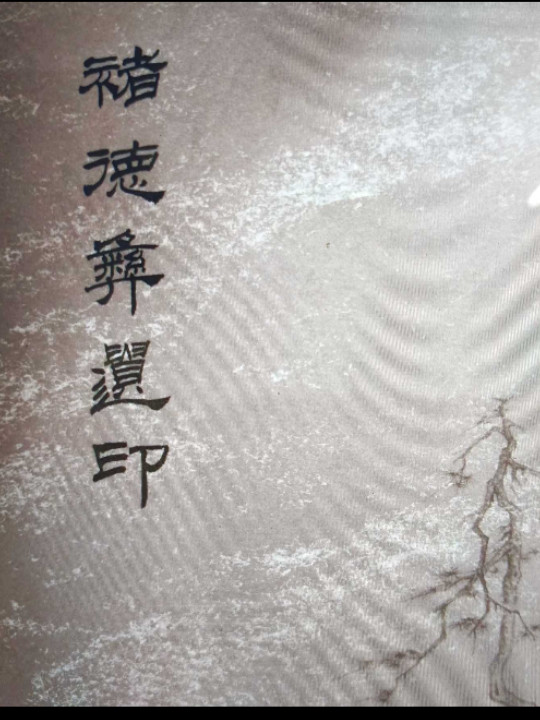 褚德彝遺印